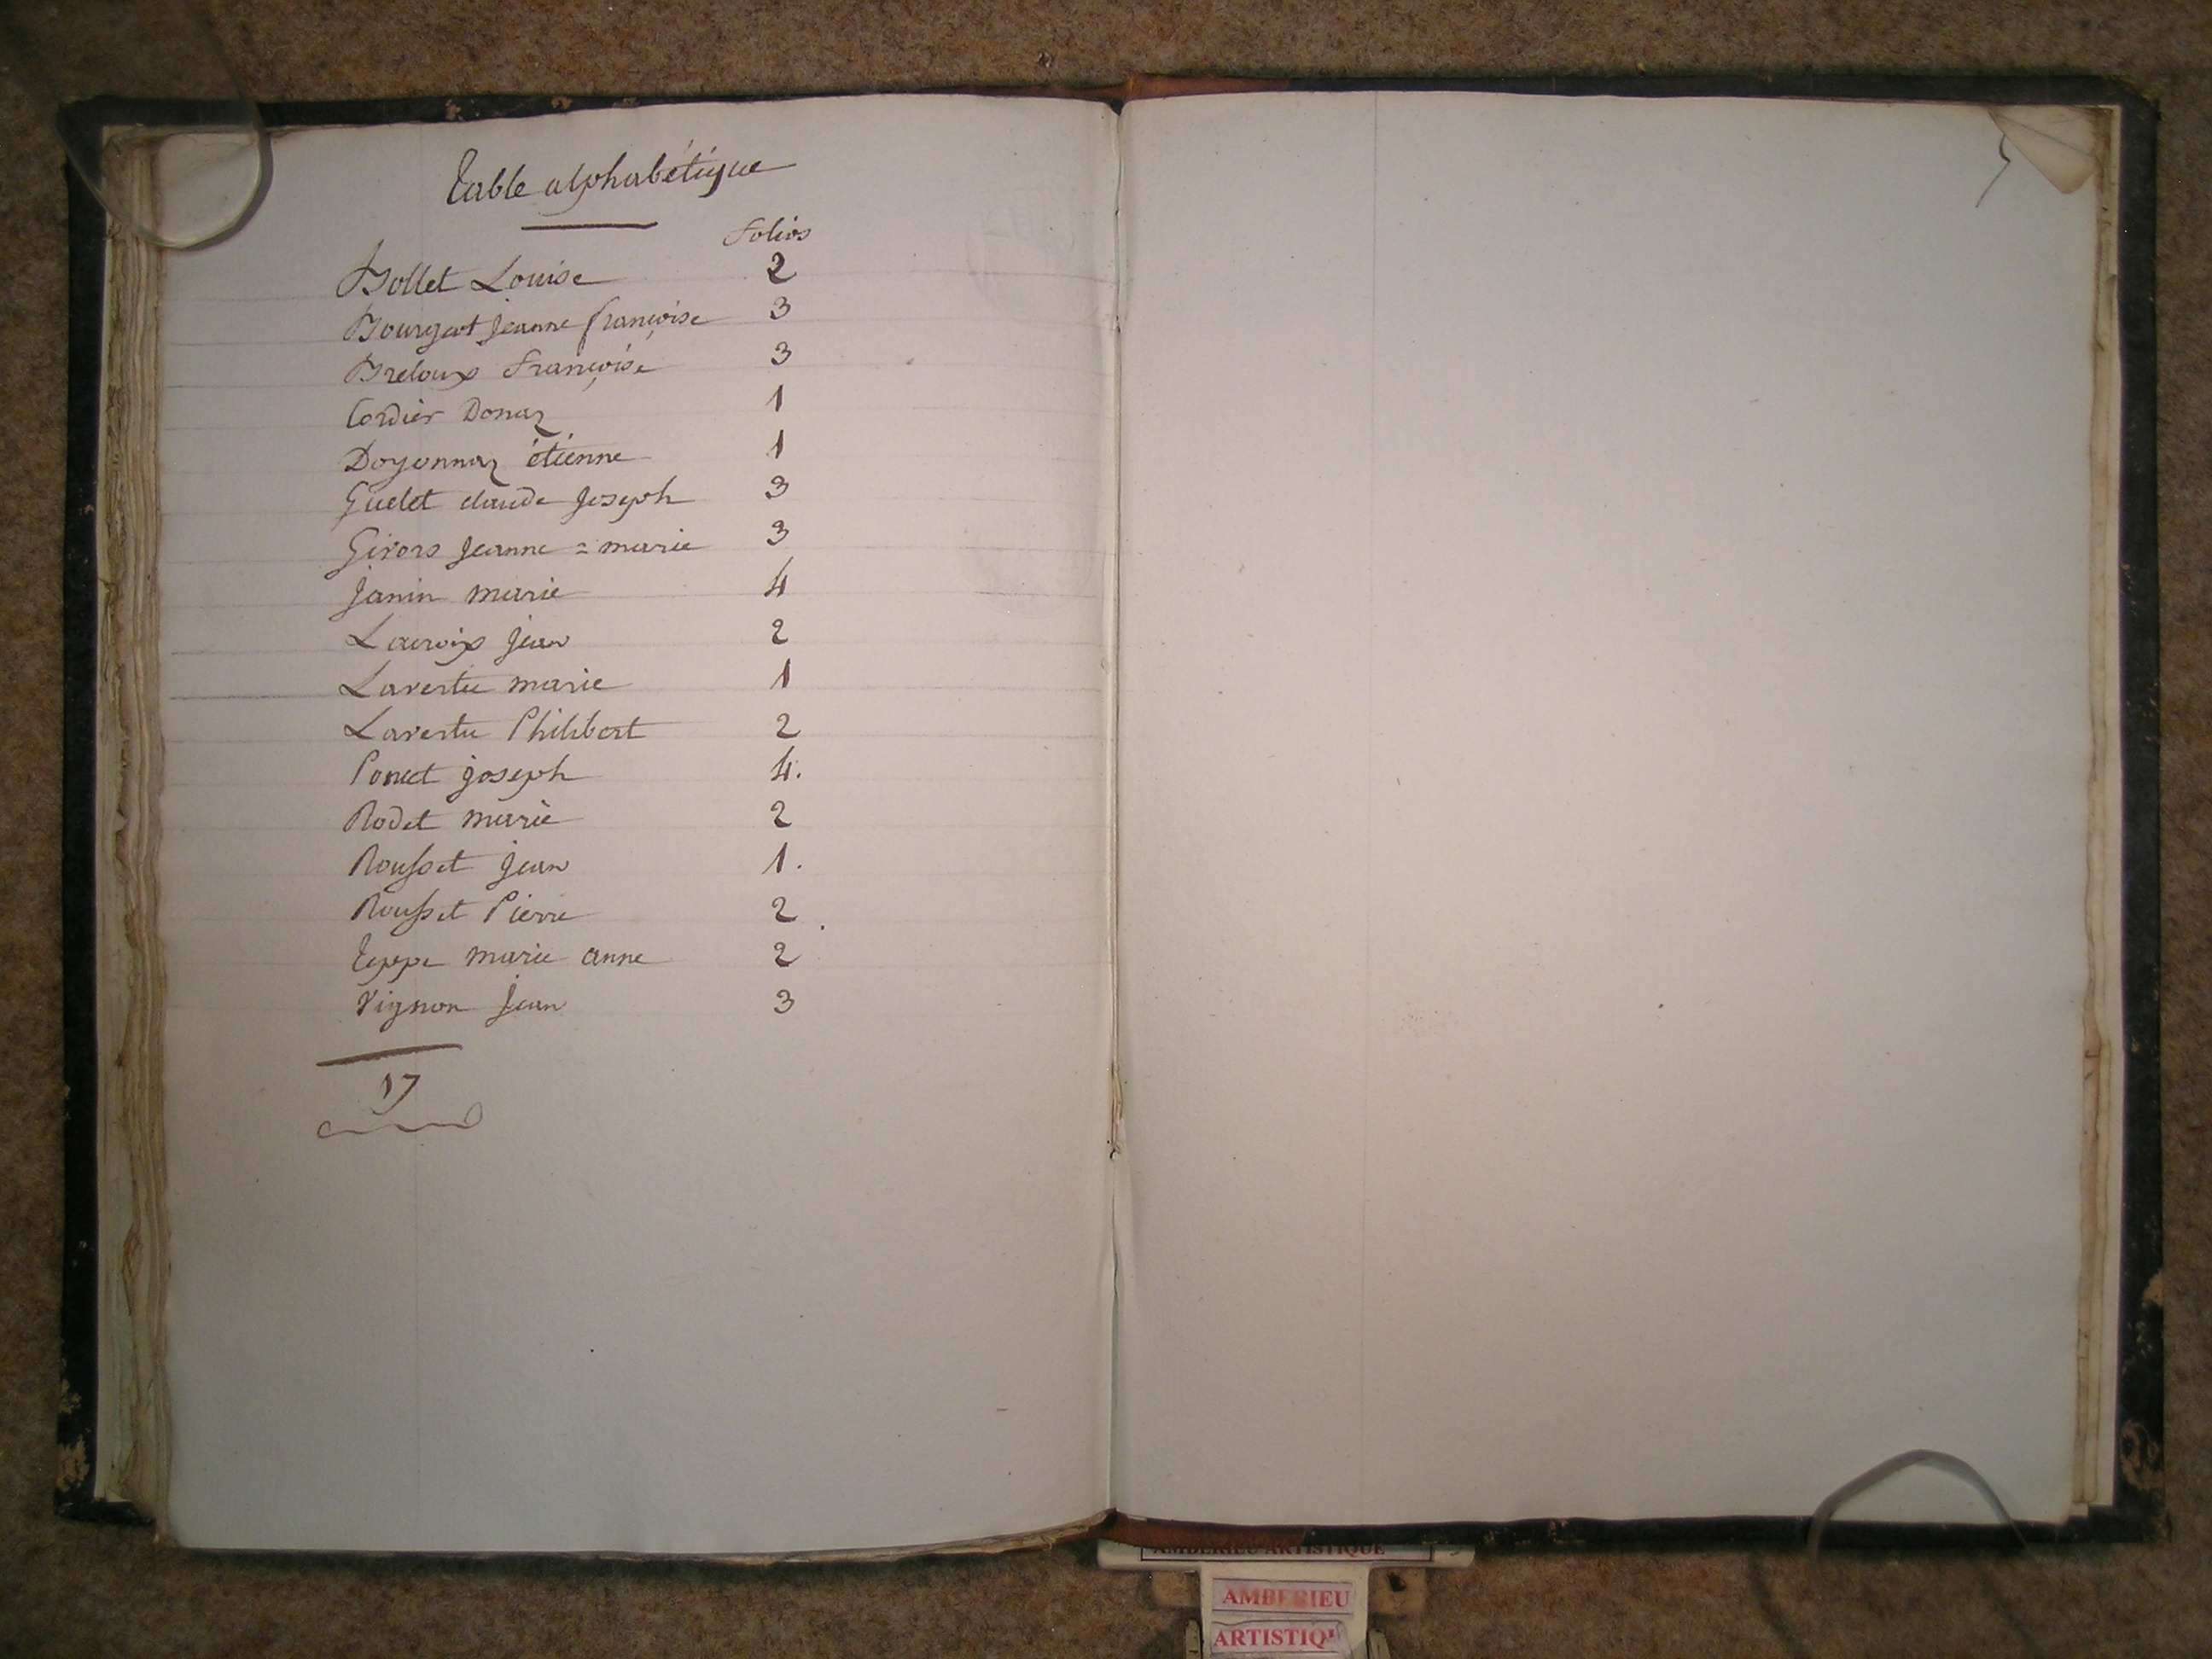 Table alphabétique
folios
Bollet Louise 2
Bourgeot jeanne françoise 3
Breloux françoise 3
Cordier Donaz 1
Doyonnaz étienne 1
Guelet claude Joseph 3
Girors Jeanne = marie 3
Janin marie 4
Lacroix jean 2
Lavertu marie 1
Lavertu Philibert 2
Poncet joseph 4.
Rodet marie 2
Rousset jean 1.
Rousset Pierre 2.
Teppe marie anne 2
Vignon Jean 3
17
AMBERIEU ARTISTIQUE
AMBERIEU
ARTISTIQU